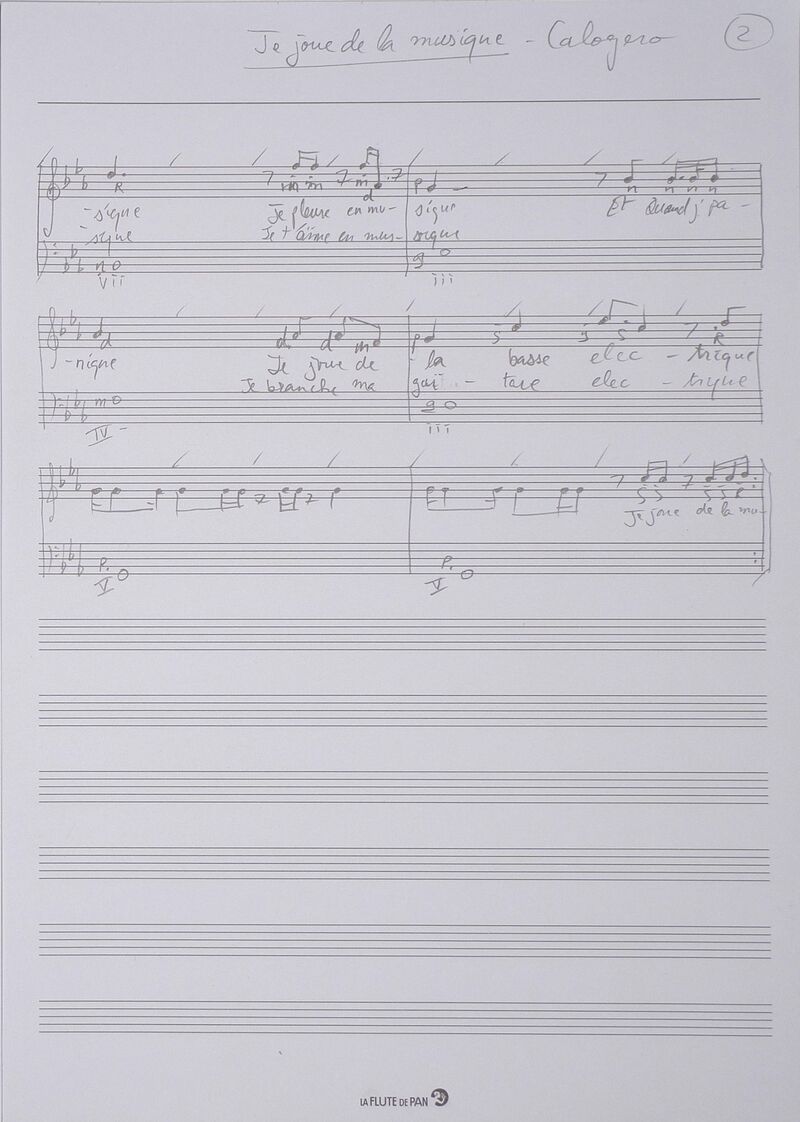 Je joue de la musique - Calogero 2
R m m m d P n n n n
-sique Je pleure en mu- sique Et Quand j' pa-
-sique Je t'aime en mus- sique
VII iii
d d d m P S S S R
-nique Je joue de la basse elec - trique
Je branche ma gui - tare elec - trique
m
IV- iii
S S S S R
Je joue de la mu-
P. P.
V V
LA FLUTE DE PAN